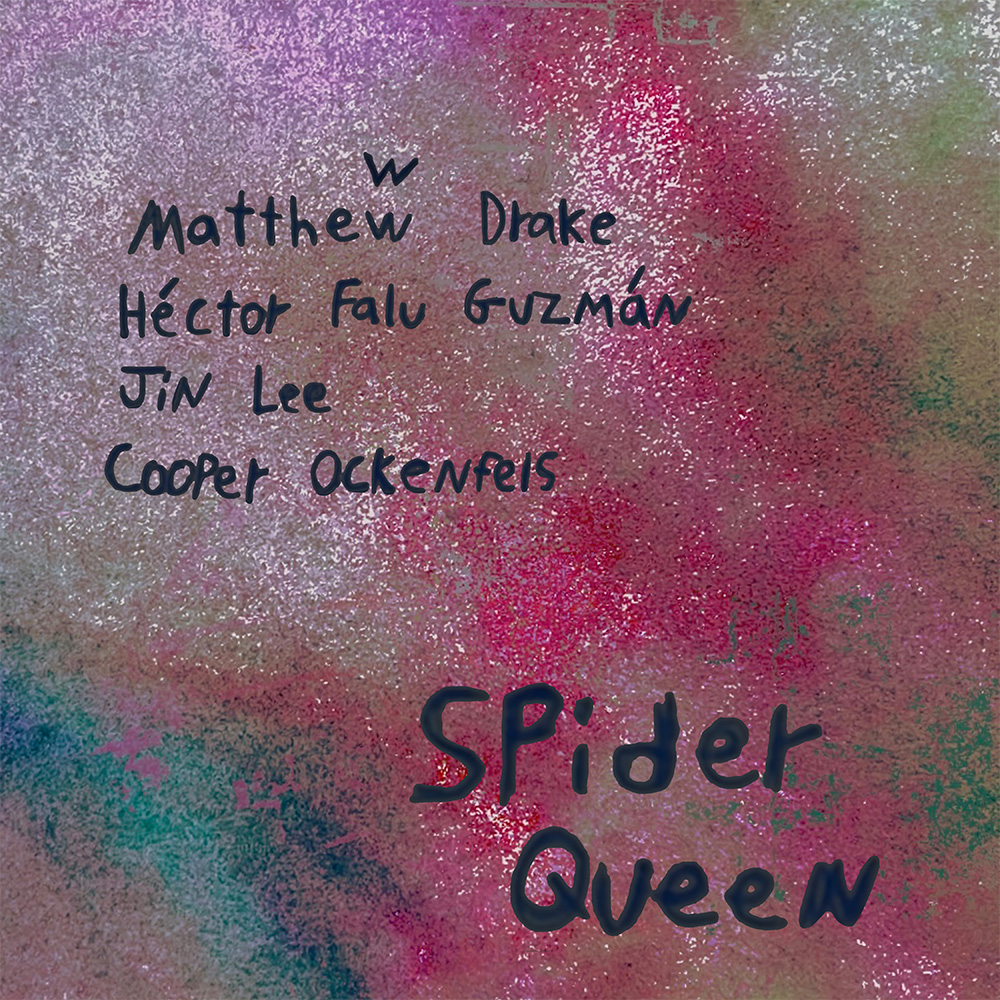 w
Matthew Drake
Héctor Falu Guzmán
Jin Lee
Cooper Ockenfels
Spider
Queen